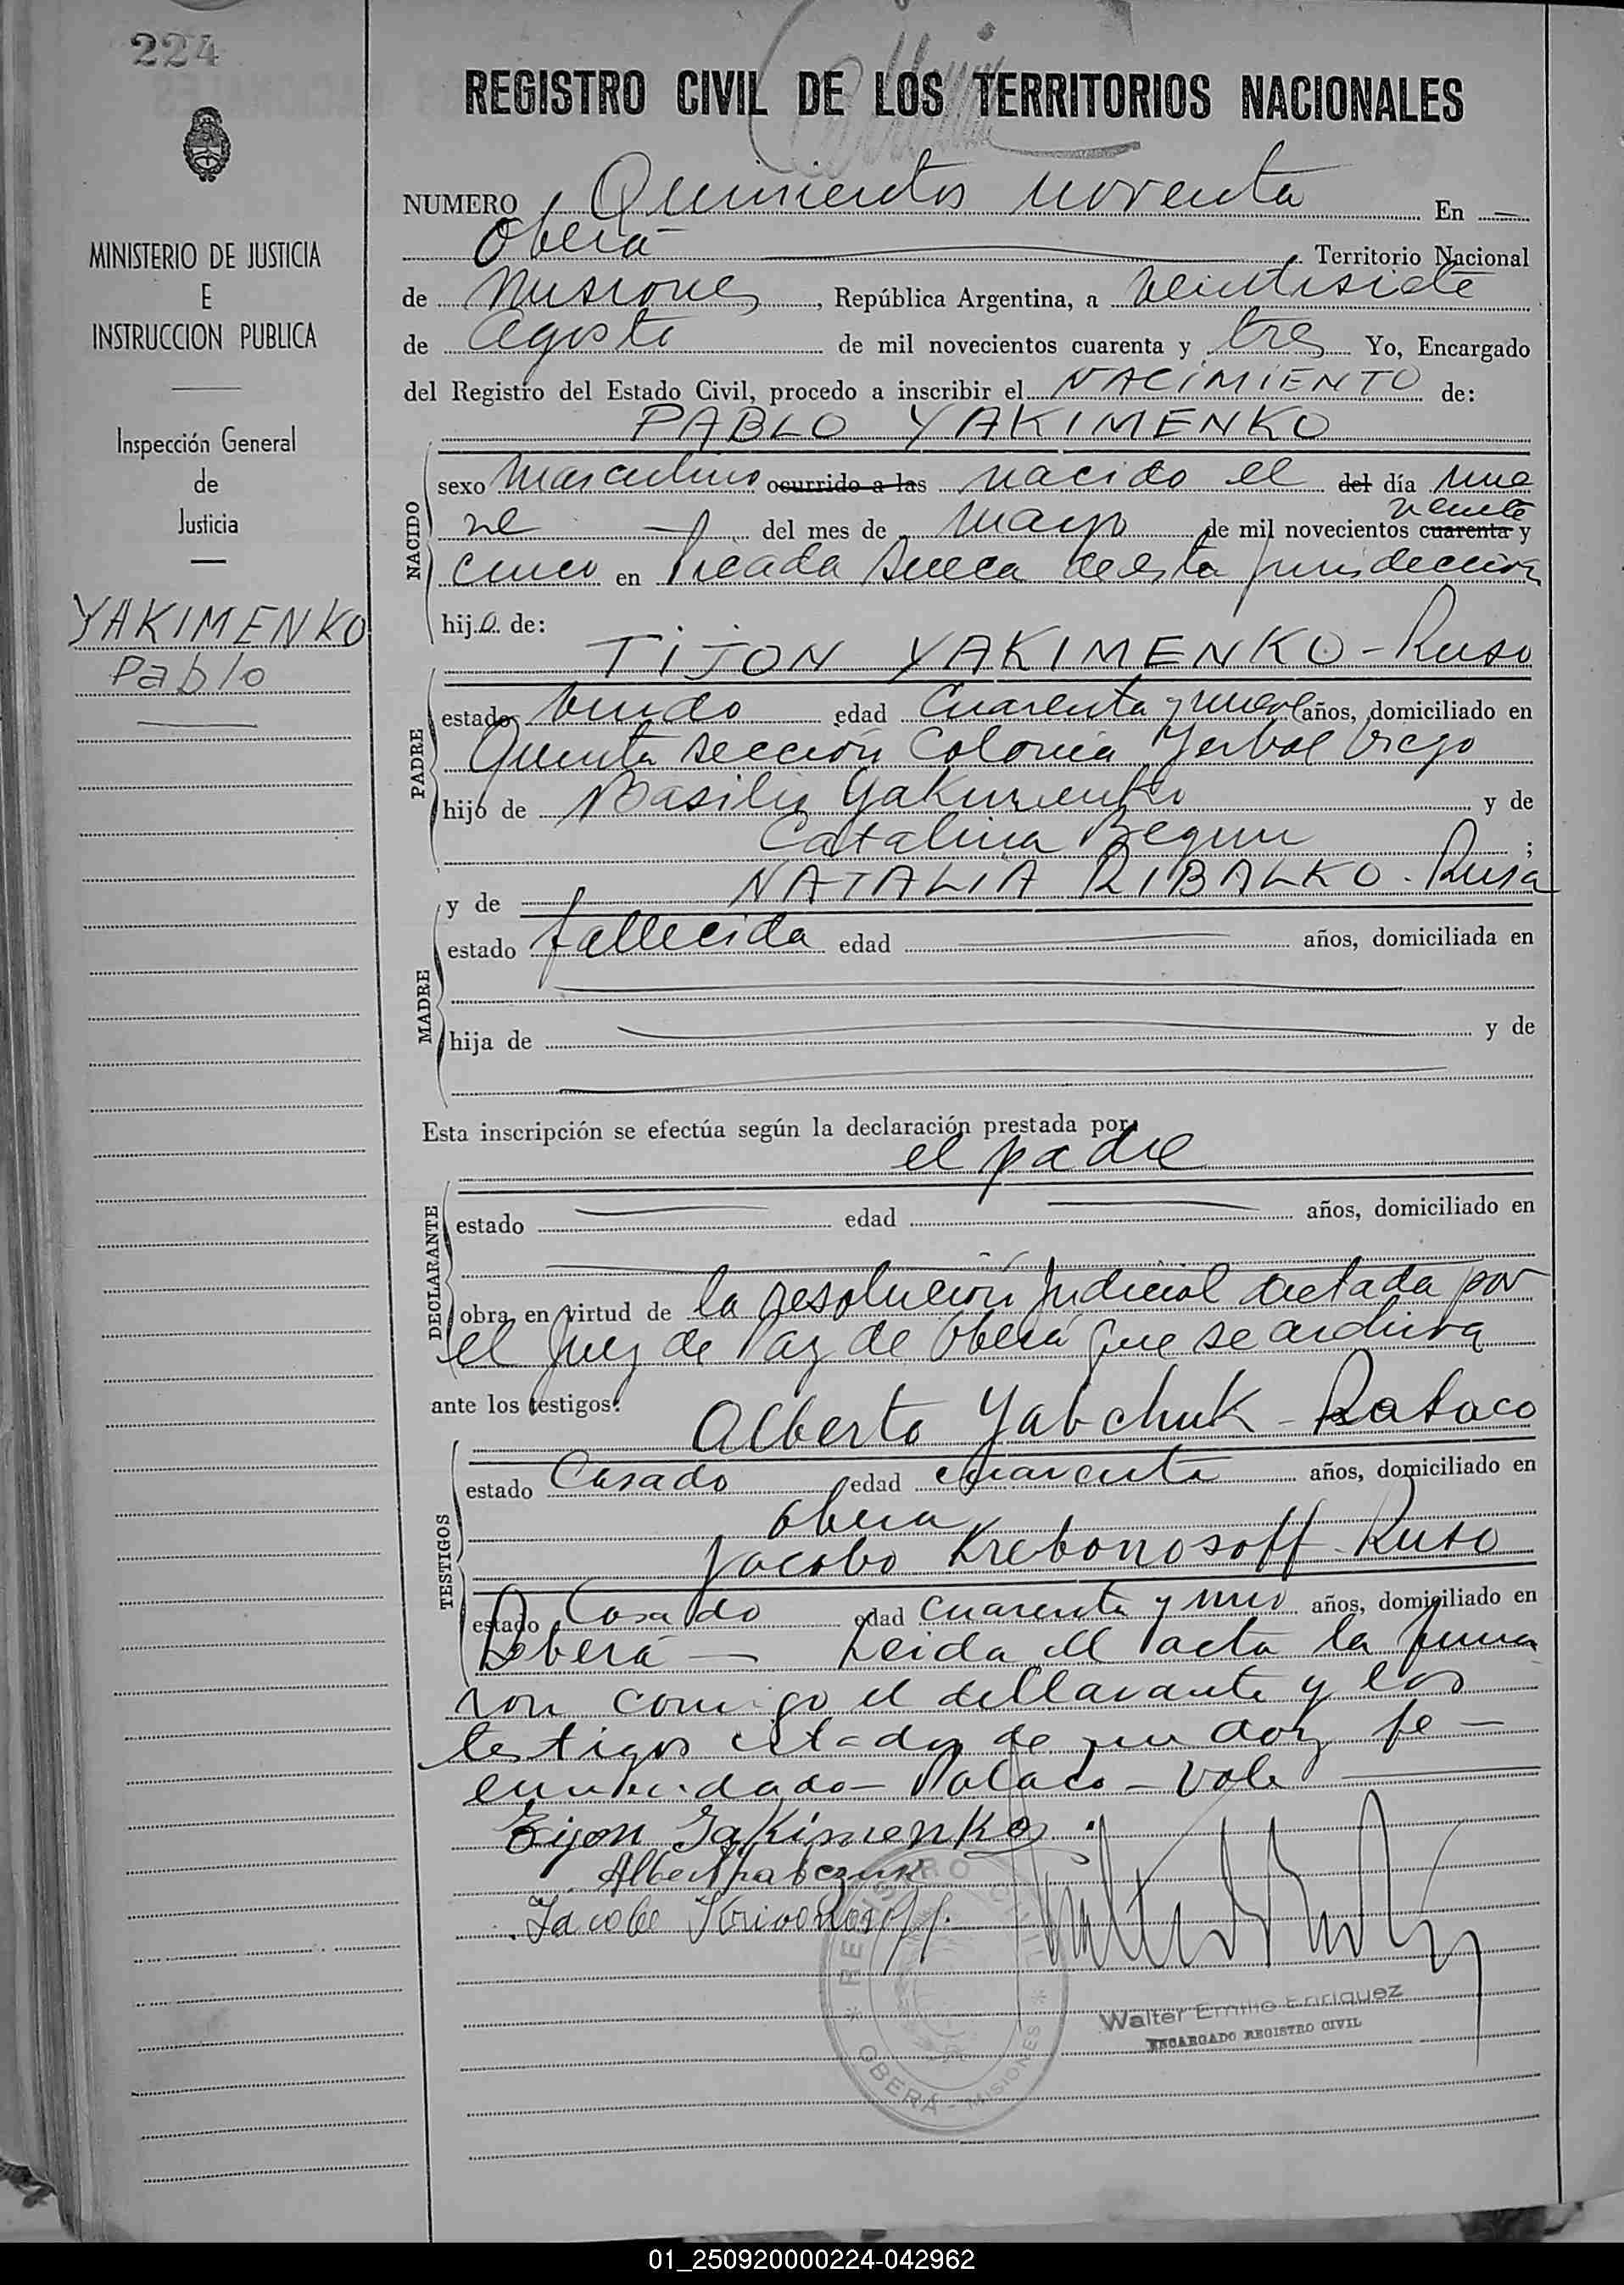 224
REGISTRO CIVIL DE LOS TERRITORIOS NACIONALES
MINISTERIO DE JUSTICIA
E
INSTRUCCION PUBLICA
Inspección General
de
Justicia
YAKIMENKO
Pablo
NUMERO Quinientos noventa En —
Oberá Territorio Nacional
de Misiones, República Argentina, a veintisiete
de Agosto de mil novecientos cuarenta y tres Yo, Encargado
del Registro del Estado Civil, procedo a inscribir el NACIMIENTO de:
PABLO YAKIMENKO
NACIDO
sexo masculino ocurrido a las nacido el del día nue
veinte
ve — del mes de mayo de mil novecientos cuarenta y
cinco en Picada Sueca de esta jurisdicción
hijo de:
TIJON YAKIMENKO - Ruso
PADRE
estado viudo edad cuarenta y nueve años, domiciliado en
Quinta sección Colonia Yerbal Viejo
hijo de Basilio Yakimenko y de
Catalina Begun ;
y de NATALIA RIBALKO - Rusa
MADRE
estado fallecida edad años, domiciliada en
hija de y de
Esta inscripción se efectúa según la declaración prestada por:
el padre
DECLARANTE
estado edad años, domiciliado en
obra en virtud de la resolución judicial dictada por
el Juez de Paz de Oberá que se archiva
ante los testigos:
Alberto Yabchuk - Polaco
TESTIGOS
estado Casado edad cuarenta años, domiciliado en
Obera
Jacobo Krebonosoff - Ruso
estado Casado edad cuarenta y uno años, domiciliado en
Oberá — Leida el acta la firma
ron conmigo el declarante y los
testigos citados de que doy fe —
enmendado - Polaco - Vale
Tijon Jakimenko
Jacobo Krivonosoff.
REGISTRO CIVIL
OBERÁ - MISIONES
Walter Emilio Enriquez
ENCARGADO REGISTRO CIVIL
01_250920000224-042962